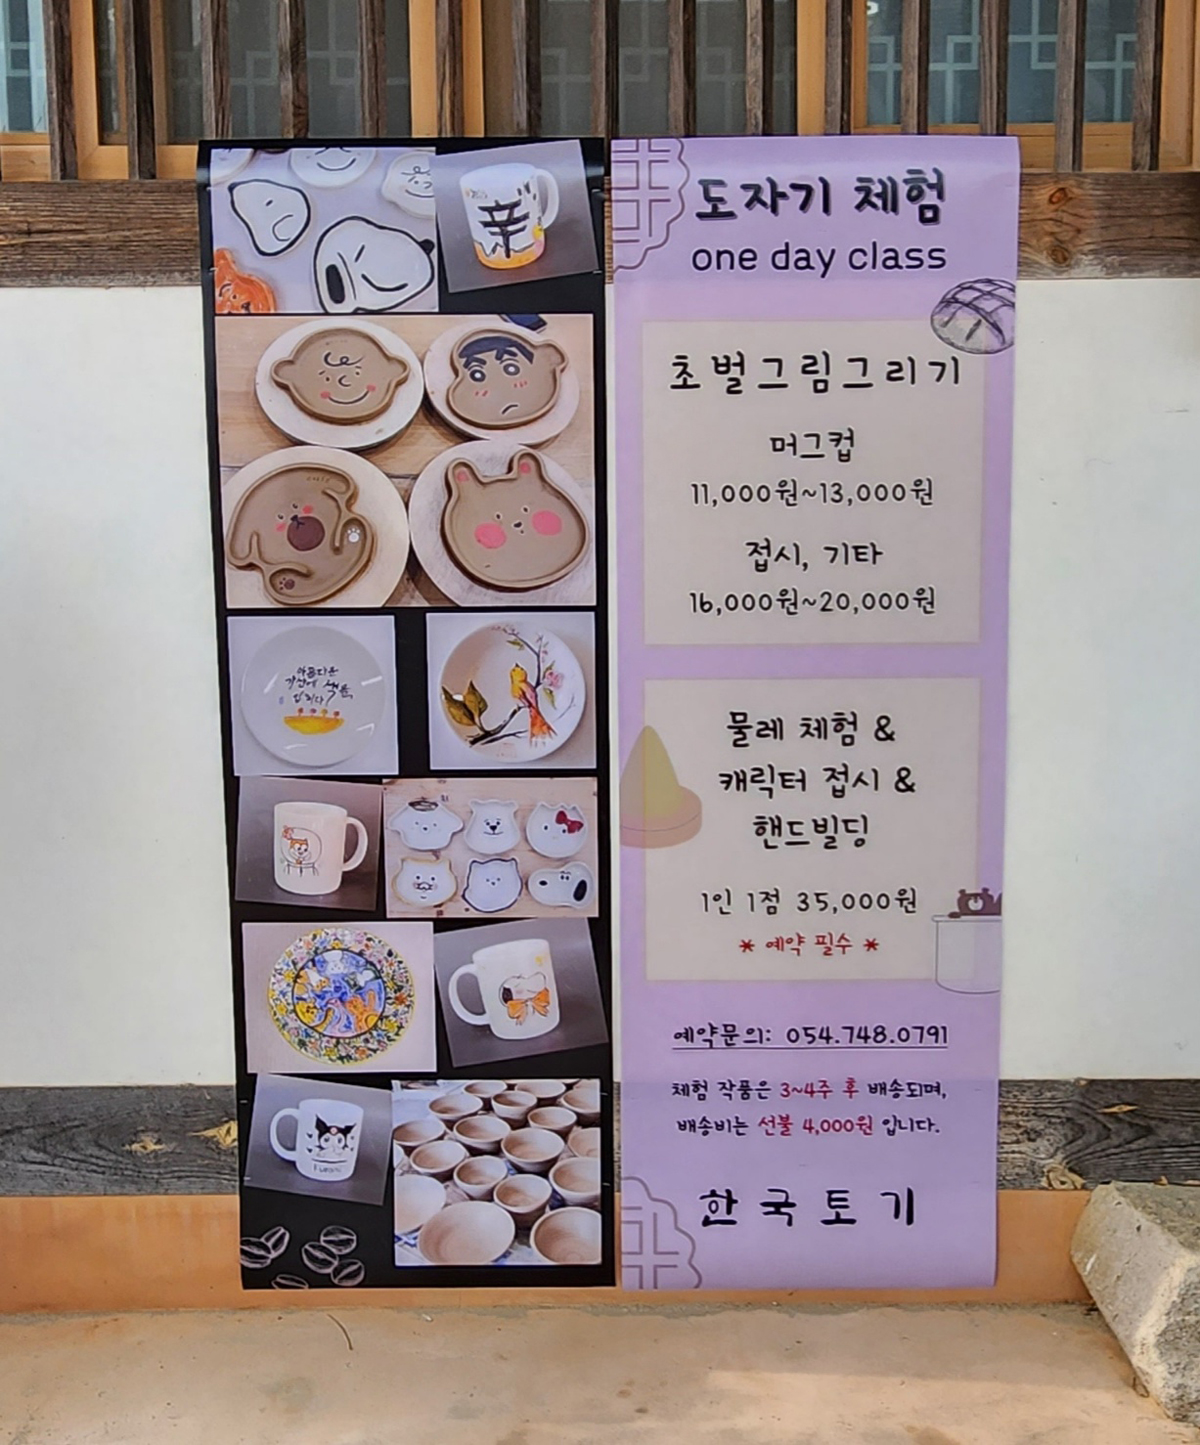 도자기 체험
one day class
초벌그림그리기
머그컵
11,000원~13,000원
접시, 기타
16,000원~20,000원
물레 체험 &
캐릭터 접시 &
핸드빌딩
1인 1점 35,000원
* 예약 필수 *
예약문의: 054.748.0791
체험 작품은 3~4주 후 배송되며,
배송비는 선불 4,000원 입니다.
한국토기
辛
아름다운
입니다